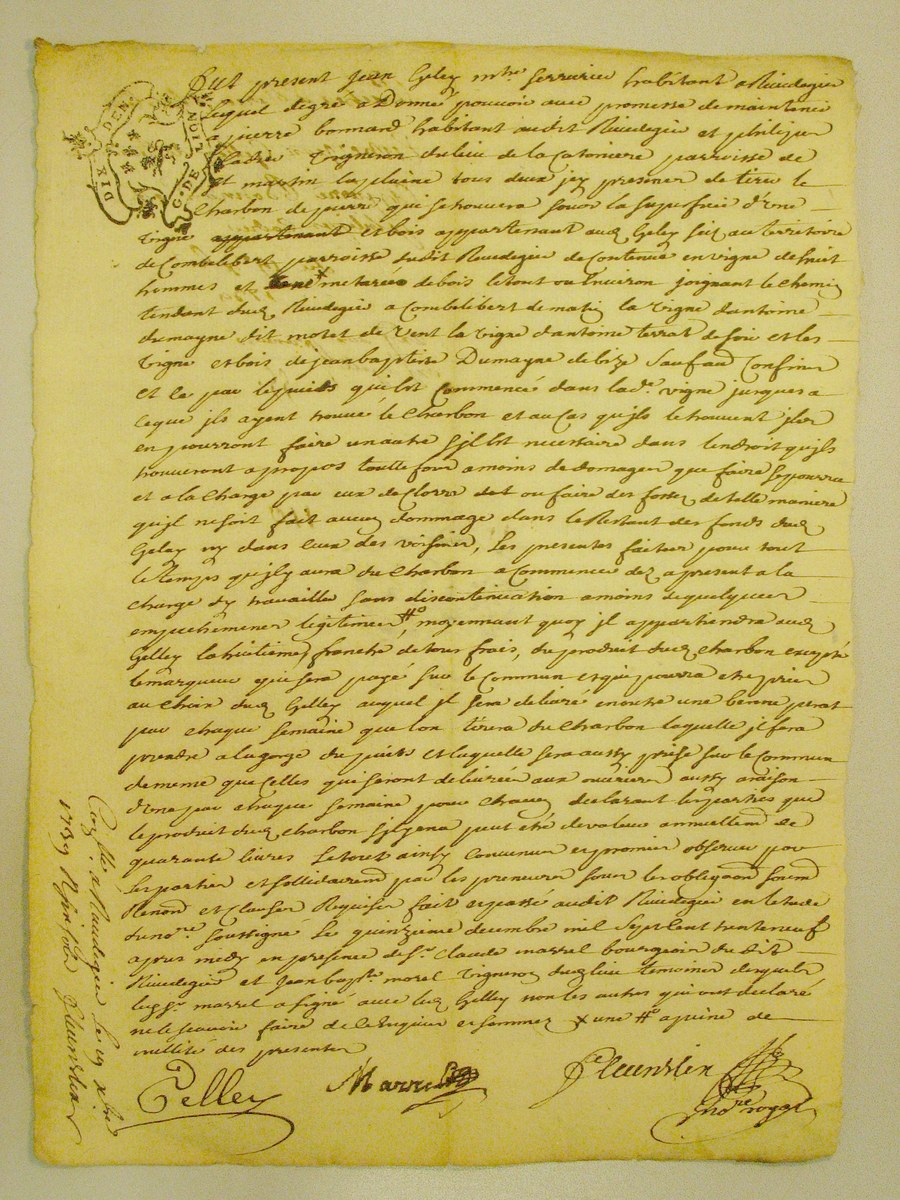 DIX DEN.
G. DE LION
Fut present Jean Geley mtre serrurier habitant a Rivedegier
lequel degré a Donné pouvoir avec promesse de maintenir
a pierre bonnard habitant audit Rivedegier et philipe
vigneron du lieu de la Catoniere parroisse de
st martin la plaine tous deux jcy presents de tirer le
Charbon de pierre qui se trouvera sous la superficie d'Une
vigne appartenant et bois appartenant aud Geley sis au territoire
de Combelibert parroisse dudit Rivedegier de Contenue en vigne de huit
hommes et x metarée de bois le tout ou Environ joignant le chemin
tendant dud Rivedegier a Combelibert de matin la vigne dantoine
dumayne dit motet de vent la vigne dantoine terrat de soir et les
vigne et bois de jean baptiste Dumayne de bize Sauf au Confins
et ce par le puits qui Est Commencé dans lad.e vigne jusques a
ce que jls ayent trouvé le Charbon et au Cas qu'jls le trouvent jls
en pourront faire un autre s'jl Est necessaire dans lendroit qu'jls
trouveront a propos toutte fois a moins de domages que faire se pourra
et a la Charge par eux de Clorre ou faire des fossés de telle maniere
qu'jl ne soit fait aucun dommage dans le Restant des fonds dud
Geley ny dans Ceux des voisins, Les presentes faittes pour tout
le temps qu'jl y aura du Charbon a Commencer dez a present a la
charge d'y travailler sans discontinuation a moins de quelques
empechements legitimes #o moyennant quoy jl appartiendra aud
Gelley la huitieme, franche de tous frais, du produit dud charbon excepté
le marqueur qui sera payé sur le Commun et qui pourra etre pris
au Choix dud Gelley auquel jl sera delivré en outre une benne perat
par chaque semaine que lon tirera du Charbon laquelle jl fera
prendre a la gorge du puits et laquelle sera aussy prise sur le Commun
de meme que Celles qui seront delivrée aux ouvriers aussy a raison
d'Une par chaque semaine pour chacun declarant les parties que
le produit dud charbon peut etre de valeur annuellemt de
quarante livres Le tout ainsy Convenu et promis observer par
les parties et sollidairemt par les preneurs sous les obligaons soumd
Renond et Clauses Requises fait et passé audit Rivedegier en letude
du no.re soussigné Le quinzieme decembre mil sept Cent trente neuf
apres midy en presence de sr. Claude marrel bourgeois du dit
Rivedegier et Jean bapte. morel vigneron dud lieu temoins desquels
led sr. marrel a signé avec led Gelley non les autres qui ont declaré
ne le scavoir faire de ce Enquis et sommez x une #o a peine de
nullité des presentes
Gelley Marrel Fleurdelix
no.re royal
Conllé a Rivedegier Le 19 xbre
1739 Fleurdelix